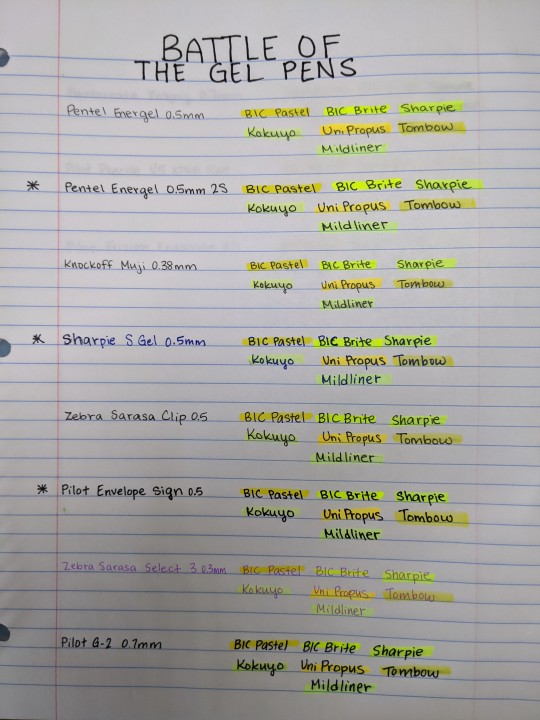 BATTLE OF
THE GEL PENS
Pentel Energel 0.5mm BIC Pastel BIC Brite Sharpie
Kokuyo Uni Propus Tombow
Mildliner
* Pentel Energel 0.5mm 2S BIC Pastel BIC Brite Sharpie
Kokuyo Uni Propus Tombow
Mildliner
Knockoff Muji 0.38mm BIC Pastel BIC Brite Sharpie
Kokuyo Uni Propus Tombow
Mildliner
* Sharpie S Gel 0.5mm BIC Pastel BIC Brite Sharpie
Kokuyo Uni Propus Tombow
Mildliner
Zebra Sarasa Clip 0.5 BIC Pastel BIC Brite Sharpie
Kokuyo Uni Propus Tombow
Mildliner
* Pilot Envelope Sign 0.5 BIC Pastel BIC Brite Sharpie
Kokuyo Uni Propus Tombow
Mildliner
Zebra Sarasa Select 3 0.3mm BIC Pastel BIC Brite Sharpie
Kokuyo Uni Propus Tombow
Mildliner
Pilot G-2 0.7mm BIC Pastel BIC Brite Sharpie
Kokuyo Uni Propus Tombow
Mildliner